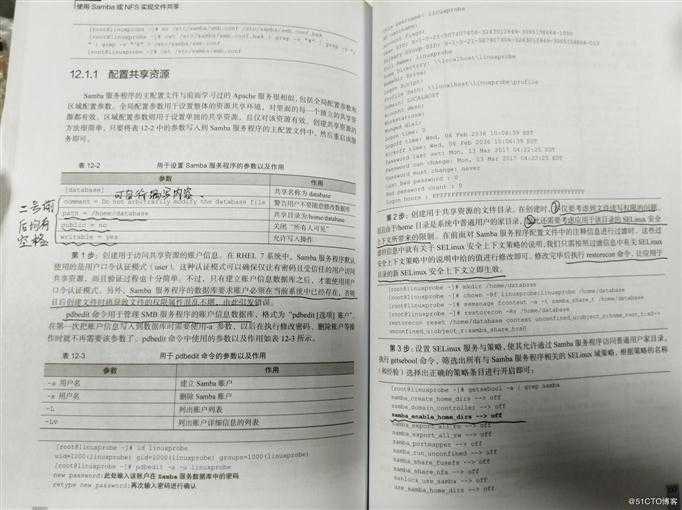 使用 Samba 或 NFS 实现文件共享
[root@linuxprobe ~]# mv /etc/samba/smb.conf /etc/samba/smb.conf.bak
12.1.1 配置共享资源
Samba 服务程序的主配置文件与前面学习过的 Apache 服务很相似，包括全局配置参数和
区域配置参数。全局配置参数用于设置整体的资源共享环境，对里面的每一个独立的共享资
源都有效。区域配置参数则用于设置单独的共享资源，且仅对该资源有效。创建共享资源的
方法很简单，只要将表 12-2 中的参数写入到 Samba 服务程序的主配置文件中，然后重启该服
务即可。
表 12-2 用于设置 Samba 服务程序的参数以及作用
参数 作用
[database] 共享名称为 database
comment = Do not arbitrarily modify the database file 警告用户不要随意修改数据库
path = /home/database 共享目录为/home/database
public = no 关闭“所有人可见”
writable = yes 允许写入操作
第 1 步：创建用于访问共享资源的账户信息。在 RHEL 7 系统中，Samba 服务程序默认
使用的是用户口令认证模式（user）。这种认证模式可以确保仅让有密码且受信任的用户访问
共享资源，而且验证过程也十分简单。不过，只有建立账户信息数据库之后，才能使用用户
口令认证模式。另外，Samba 服务程序的数据库要求账户必须在当前系统中已经存在，否则
日后创建文件时将导致文件的权限属性混乱不堪，由此引发错误。
pdbedit 命令用于管理 SMB 服务程序的账户信息数据库，格式为“pdbedit [选项] 账户”。
在第一次把账户信息写入到数据库时需要使用-a 参数，以后在执行修改密码、删除账户等操
作时就不再需要该参数了。pdbedit 命令中使用的参数以及作用如表 12-3 所示。
表 12-3 用于 pdbedit 命令的参数以及作用
参数 作用
-a 用户名 建立 Samba 账户
-x 用户名 删除 Samba 账户
-L 列出账户列表
-Lv 列出账户详细信息的列表
[root@linuxprobe ~]# id linuxprobe
uid=1000(linuxprobe) gid=1000(linuxprobe) groups=1000(linuxprobe)
[root@linuxprobe ~]# pdbedit -a -u linuxprobe
new password:此处输入该账户在 Samba 服务数据库中的密码
retype new password:再次输入密码进行确认
Unix username: linuxprobe
NT username:
Account Flags:
Full Name: linuxprobe
Home Directory: \\localhost\linuxprobe
Logon Script:
Profile Path: \\localhost\linuxprobe\profile
Domain: LOCALHOST
Account desc:
Workstations:
Munged dial:
Logon time: 0
Logoff time: Wed, 06 Feb 2036 10:06:39 EST
Kickoff time: Wed, 06 Feb 2036 10:06:39 EST
Password last set: Mon, 13 Mar 2017 04:22:25 EDT
Password can change: Mon, 13 Mar 2017 04:22:25 EDT
Password must change: never
Last bad password : 0
Bad password count : 0
第 2 步：创建用于共享资源的文件目录。在创建时，①不仅要考虑到文件读写权限的问题，
而且由于/home 目录是系统中普通用户的家目录，②因此还需要考虑应用于该目录的 SELinux 安全
上下文所带来的限制。在前面对 Samba 服务程序配置文件中的注释信息进行过滤时，这些过
滤信息中就有关于 SELinux 安全上下文策略的说明，我们只需按照过滤信息中有关 SELinux
安全上下文策略中的说明中给的值进行修改即可。修改完毕后执行 restorecon 命令，让应用于
目录的新 SELinux 安全上下文立即生效。
[root@linuxprobe ~]# mkdir /home/database
[root@linuxprobe ~]# chown -Rf linuxprobe:linuxprobe /home/database
[root@linuxprobe ~]# semanage fcontext -a -t samba_share_t /home/database
[root@linuxprobe ~]# restorecon -Rv /home/database
restorecon reset /home/database context unconfined_u:object_r:home_root_t:s0->
unconfined_u:object_r:samba_share_t:s0
第 3 步：设置 SELinux 服务与策略，使其允许通过 Samba 服务程序访问普通用户家目录。
执行 getsebool 命令，筛选出所有与 Samba 服务程序相关的 SELinux 域策略，根据策略的名称
（和经验）选择出正确的策略条目进行开启即可：
[root@linuxprobe ~]# getsebool -a | grep samba
samba_create_home_dirs --> off
samba_domain_controller --> off
samba_enable_home_dirs --> off
samba_export_all_ro --> off
samba_export_all_rw --> off
samba_portmapper --> off
samba_run_unconfined --> off
samba_share_fusefs --> off
samba_share_nfs --> off
sanlock_use_samba --> off
use_samba_home_dirs --> off
可自行描写内容.
二号前
后均有
空格
@51CTO博客